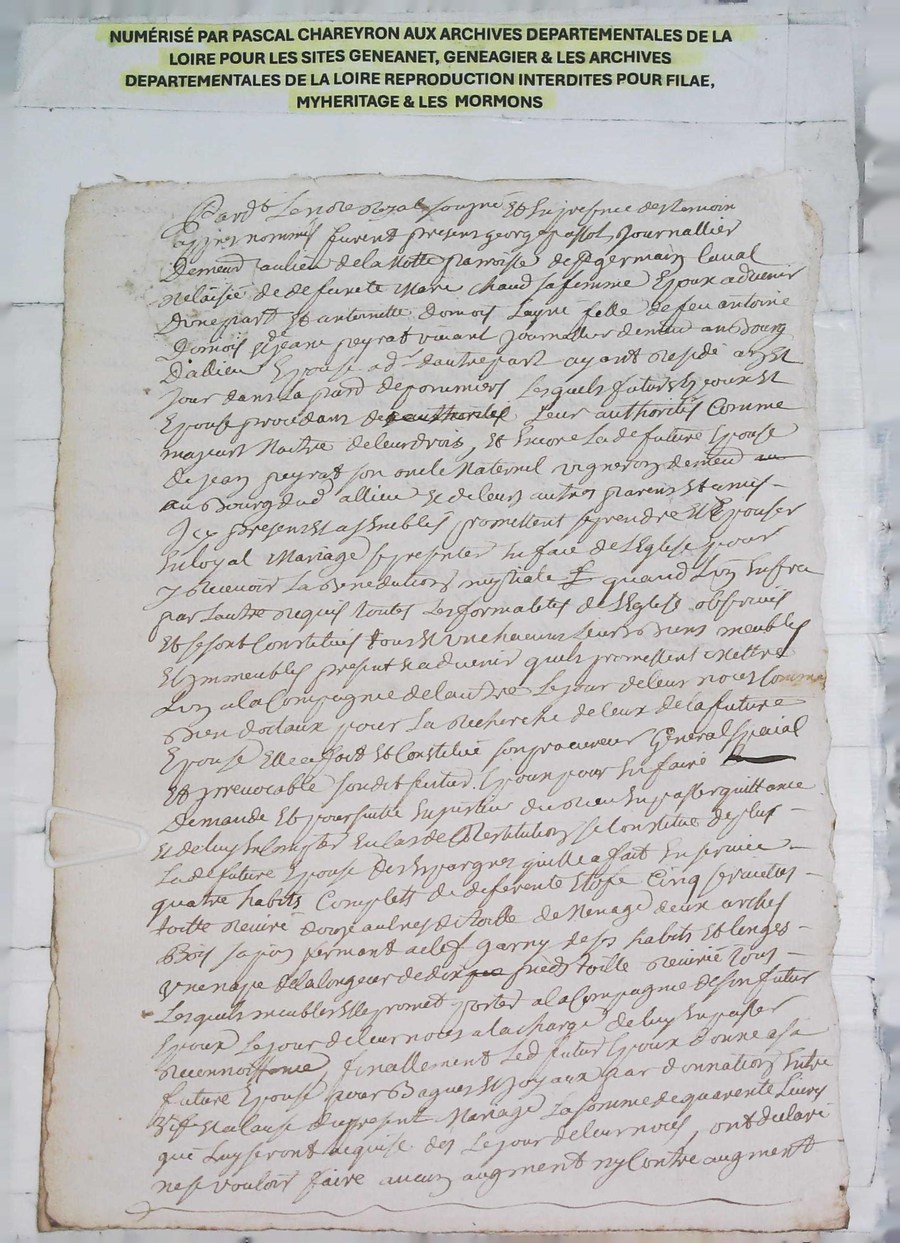 NUMÉRISÉ PAR PASCAL CHAREYRON AUX ARCHIVES DEPARTEMENTALES DE LA
LOIRE POUR LES SITES GENEANET, GENEAGIER & LES ARCHIVES
DEPARTEMENTALES DE LA LOIRE REPRODUCTION INTERDITES POUR FILAE,
MYHERITAGE & LES MORMONS
Pardt Le nore Royal sousigné Et En presence des temoin
nommés furent present george passot Journallier
Demeurt au lieu de la Motte parroisse de St germain Laval
de defunte Marie Chaud sa femme Epoux advenir
D'une part Et antoinette domois fille de feu antoine
Domois et jeane peyrat vivant Journallier demeu au Bourg
D'allieu Epouse ad d'autre part ayant Residé
Jour dans La de pommiers Lesquels futurs Epoux Et
Epouse procedans de Leur authorités Comme
majeurs Maitre de leur drois, Et Encore La de future Epouse
de jean peyrat son oncle Maternel vigneron demeu
au Bourg dud allieu Et de leurs autres parens Et amis
Icy presens Et assemblés promettent se prendre Et Epouser
En loyal Mariage se presenter En face de L'Eglise pour
y Recevoir La Benediction nuptiale quand L'un En sera
par L'autre Requis toutes Les formalités de L'Eglise observées
Et se sont Constitués tous Et un chacuns Leurs Biens meubles
Et immeubles present Et advenir quils promettent Mettre
L'un a la Compagnie de L'autre Le jour de leur noces Comme
Bien dotaux pour La Recherche de ceux de la future
Epouse Elle a fait Et Constitué son procureur General special
Et irrevocable son dit futur Epoux pour En faire
Demande Et poursuitte En justice du Recu En passer quittance
Et de luy En Compter En cas de Restitution se Constitue de plus
La de future Epouse des Epargnes quelle a fait En service
quatre habits Complets de differente Etoffe Cinq serviettes
toille douze aulnes de toille de Menage deux arches
Bois sapin fermant a clef garny de ses habits Et linges
une nape de la longeur de dix pieds toille tous
Lesquels meubles Elle promet porter a la Compagnie de son futur
Epoux Le jour de leur noces a la charge de luy En passer
Reconnoissance, finallement Led futur Epoux donne a sa
future Epouse pour Bagues Et joyaux par donnation Entre
Vifs Et a cause du present Mariage La somme de quarente Livres
que Luy seront acquise des Le jour de leur noces, ont declaré
ne se vouloir faire aucun augment ny Contre augment